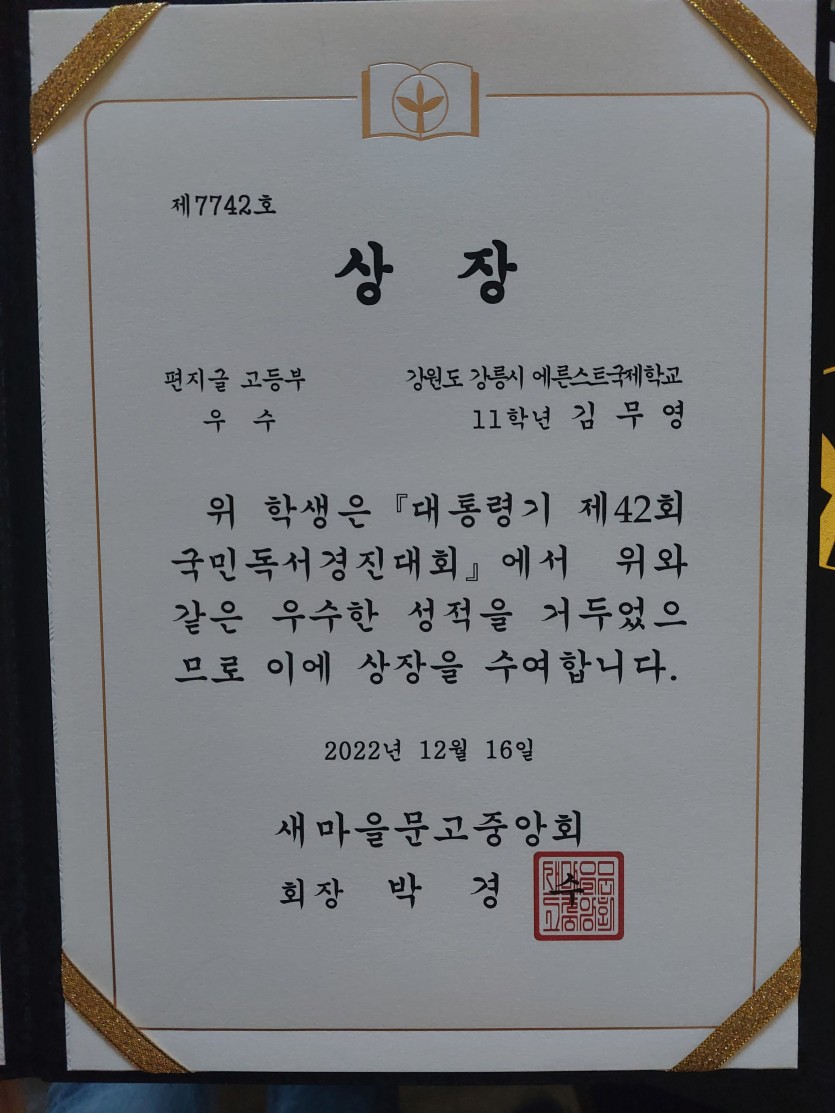 제7742호
상 장
편지글 고등부
우 수
강원도 강릉시 에른스트국제학교
11학년 김 무 영
위 학생은 『대통령기 제42회
국민독서경진대회』에서 위와
같은 우수한 성적을 거두었으
므로 이에 상장을 수여합니다.
2022년 12월 16일
새마을문고중앙회
회장 박 경 수